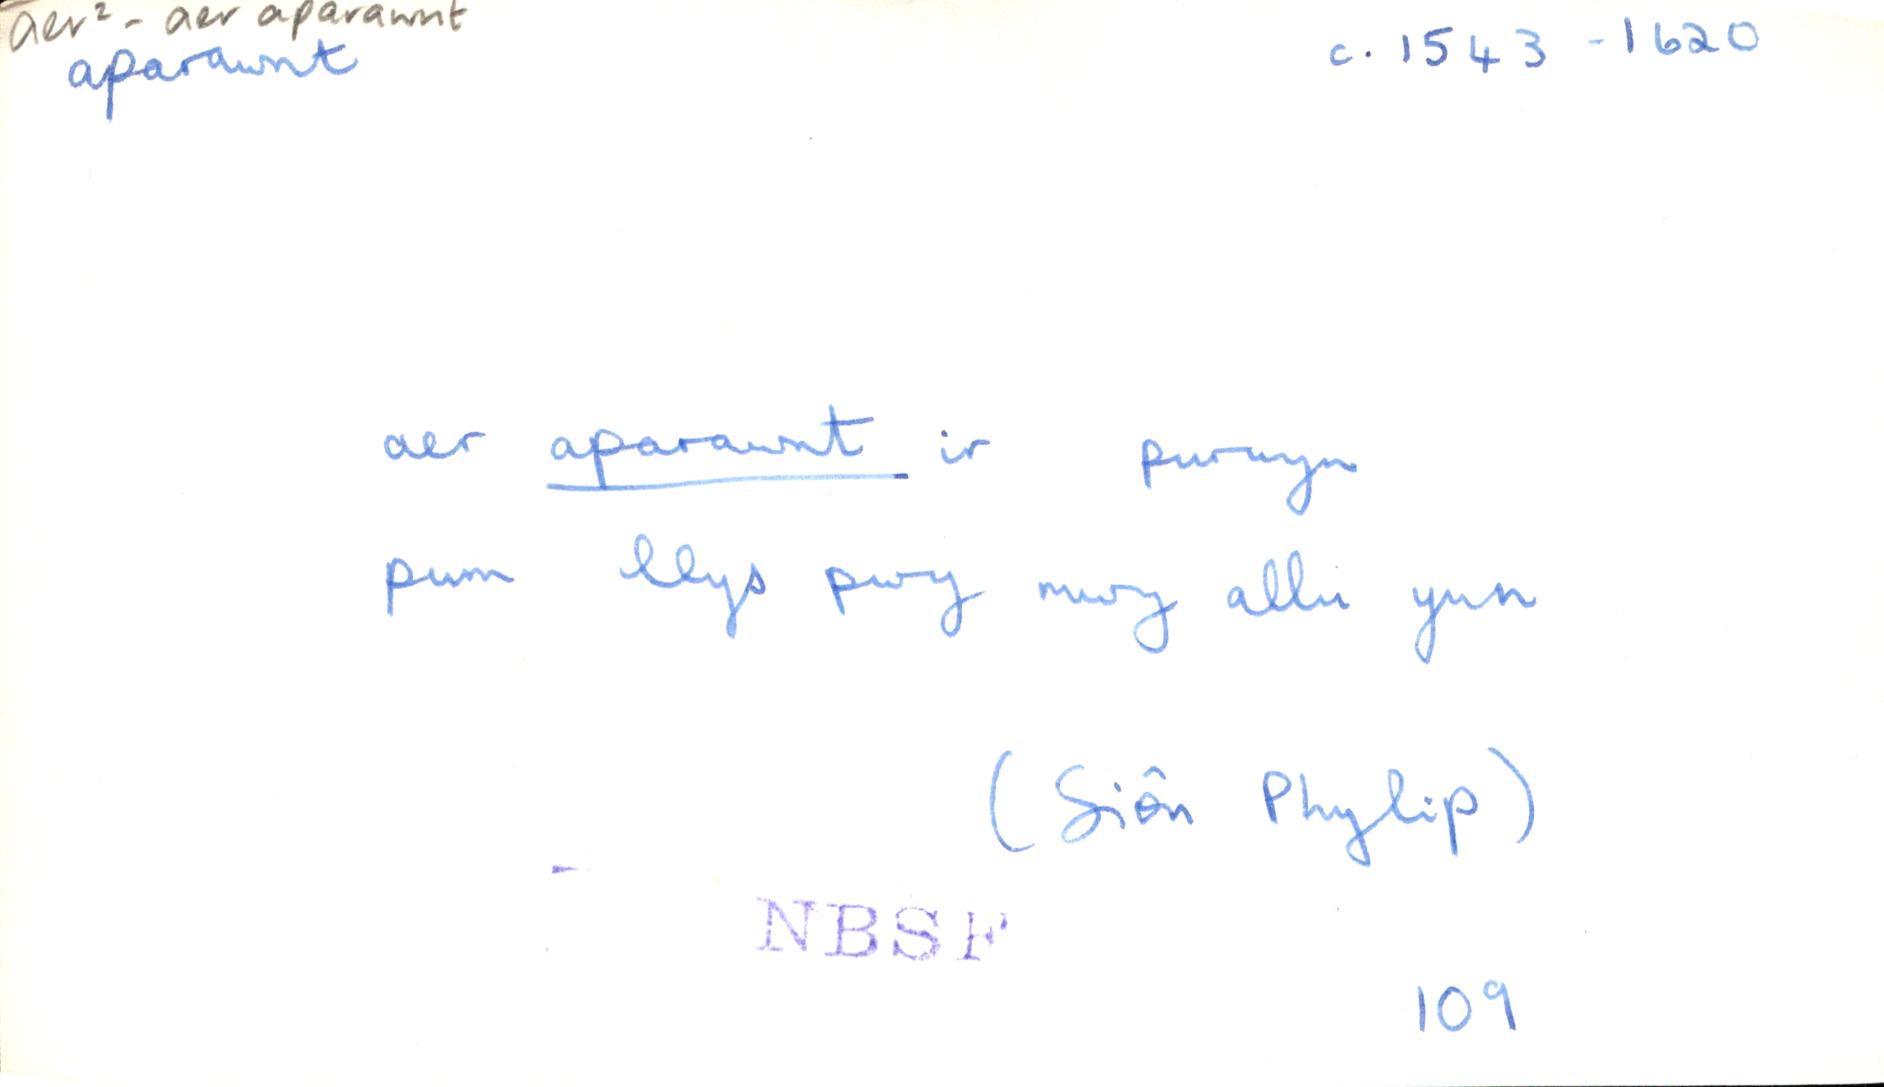 aer² - aer aparawnt
aparawnt
c. 1543 - 1620
aer aparawnt ir purwyn
pum llys pwy mwy allu yun
(Siôn Phylip)
NBSF
109